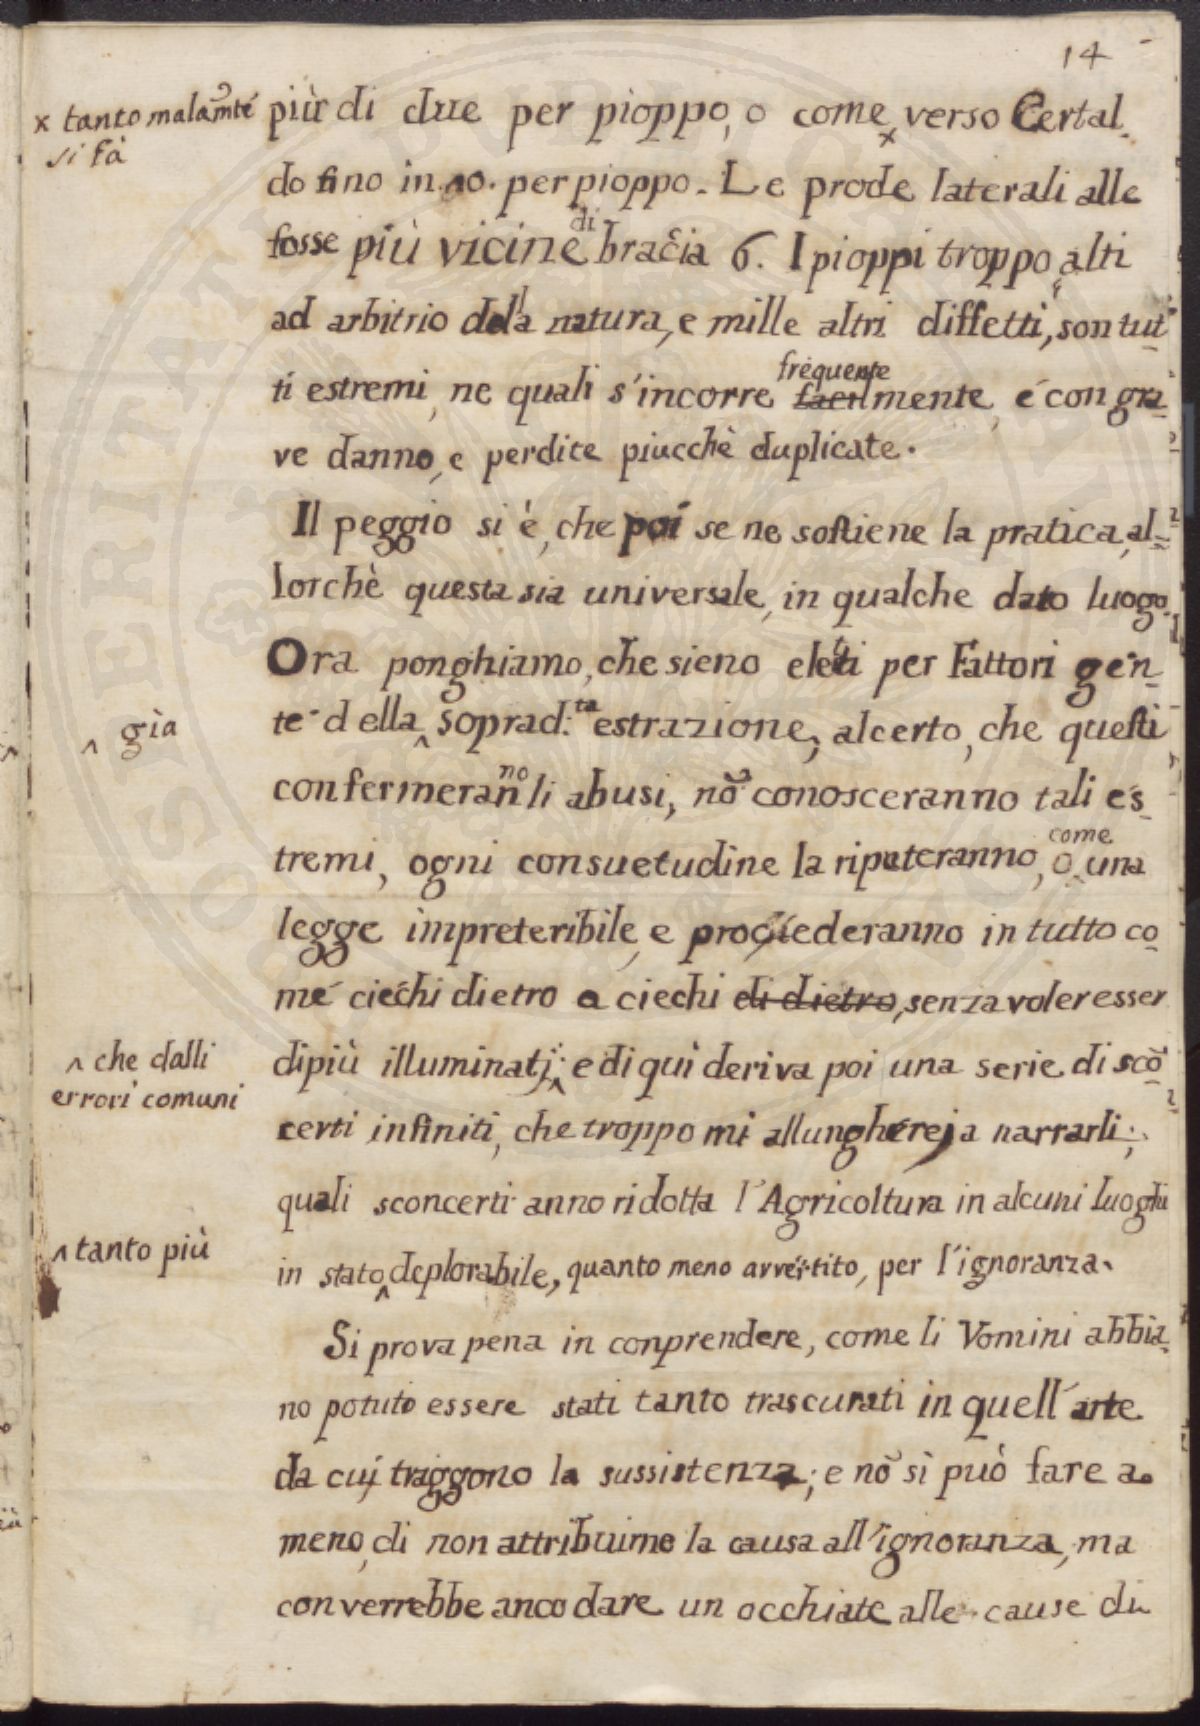 14
x tanto malam̃te
si fà
più di due per pioppo, o come x verso Certal-
do fino in 10. per pioppo. Le prode laterali alle
fosse più vicine di bracĩa 6. I pioppi troppo alti
ad arbitrio della natura, e mille altri diffetti, son tut-
ti estremi, ne quali s'incorre frequente facilmente, é con gra-
ve danno, e perdite piucchè duplicate.
Il peggio si è, che poi se ne sostiene la pratica, al-
lorchè questa sia universale, in qualche dato luogo.
Ora ponghiamo, che sieno eletti per Fattori gen-
te della ^ soprad.ta estrazione, alcerto, che questi
^ già
confermeranno li abusi, nõ conosceranno tali es-
tremi, ogni consuetudine la riputeranno, o come una
legge impreteribile, e procederanno in tutto co-
me ciechi dietro a ciechi di dietro, senza voler esser
dipiù illuminati; ^ e di quì deriva poi una serie di scõ-
^ che dalli
errori comuni
certi infiniti, che troppo mi allunghérej a narrarli;
quali sconcerti anno ridotta l'Agricoltura in alcuni luoghi
in stato ^ deplorabile, quanto meno avvertito, per l'ignoranza.
^ tanto più
Si prova pena in conprendere, come li Vomini abbia-
no potuto essere stati tanto trascurati in quell'arte
da cuj traggono la sussistenza; e nõ si può fare a
meno, di non attribuirne la causa all'ignoranza, ma
converrebbe anco dare un occhiate alle cause di